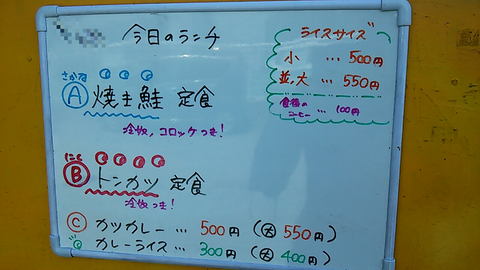 今日のランチ
さかな
A 焼き鮭 定食
冷奴,コロッケつき!
にく
B トンカツ 定食
冷奴つき!
C カツカレー … 500円 (大 550円)
カレーライス … 300円 (大 400円)
ライスサイズ
小 … 500円
並,大 … 550円
食後の
コーヒー … 100円